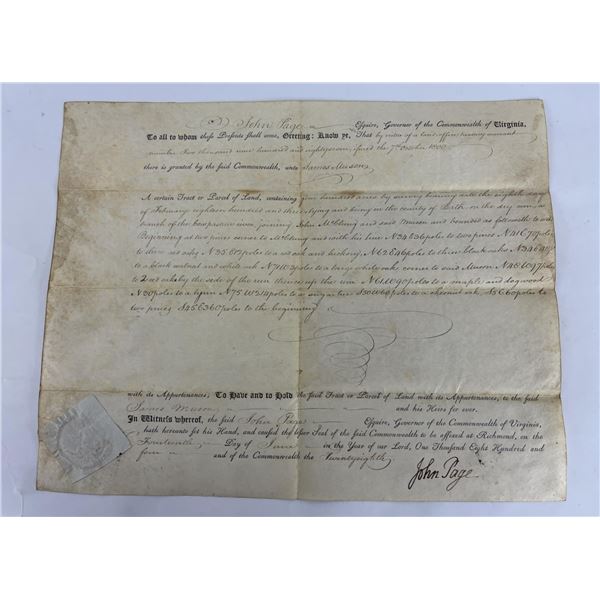 John Page Esquire, Governor of the Commonwealth of Virginia.
To all to whom these Presents shall come, Greeting: Know ye, That by virtue of a land office treasury warrant
number two thousand nine hundred and eighty seven issued the 7th October 1800
there is granted by the said Commonwealth, unto James Muson
A certain Tract or Parcel of Land, containing five hundred acres by survey bearing date the eighth day
of February eighteen hundred and three lying and being in the county of Bath on the dry run, a
branch of the Cowpasture river joining John McClung and said Muson and bounded as followeth to wit
Beginning at two pines corner to McClung and with his line poles to two pines N41E 70 poles
to three N33E 172 poles to a and hickory, N62E 46 poles to three black oaks
to a walnut and white oak N71W 3 poles to a large white oak, corner to said Muson N45W 97 poles
to 2 red oaks by the side of the run thence up the run N61W 90 poles to a maple and dogwood
N30 poles to a lynn N75W 314 poles to a sugar tree S50W 60 poles to a chesnut oak, poles to
two pines S45E 360 poles to the beginning
with its Appurtenances; To Have and to Hold the said Tract or Parcel of Land with its Appurtenances, to the said
James Muson and his Heirs for ever.
In Witness whereof, the said John Page Esquire, Governor of the Commonwealth of Virginia,
hath hereunto set his Hand, and caused the lesser Seal of the said Commonwealth to be affixed at Richmond, on the
Fourteenth Day of June in the Year of our Lord, One Thousand Eight Hundred and
four and of the Commonwealth the Twentyeighth
John Page